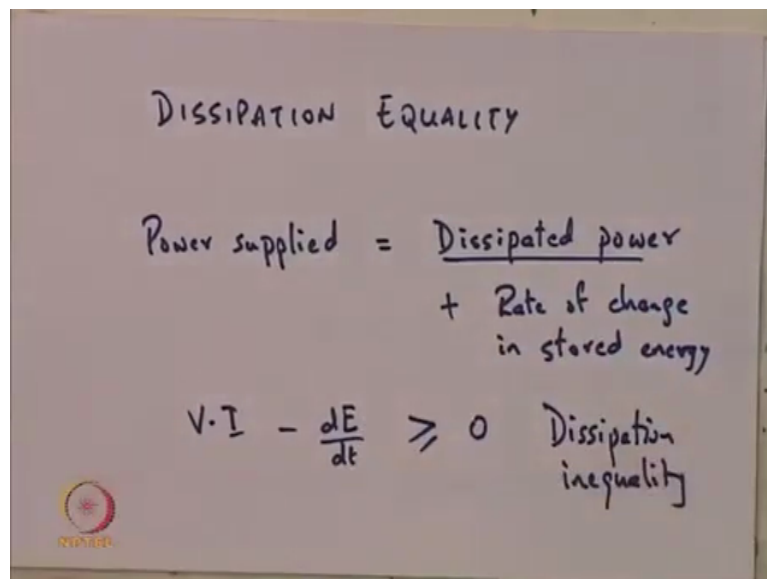 DISSIPATION EQUALITY
Power supplied = Dissipated power
+ Rate of change
in stored energy
V·I - dE/dt ⩾ 0 Dissipation
inequality
NPTEL